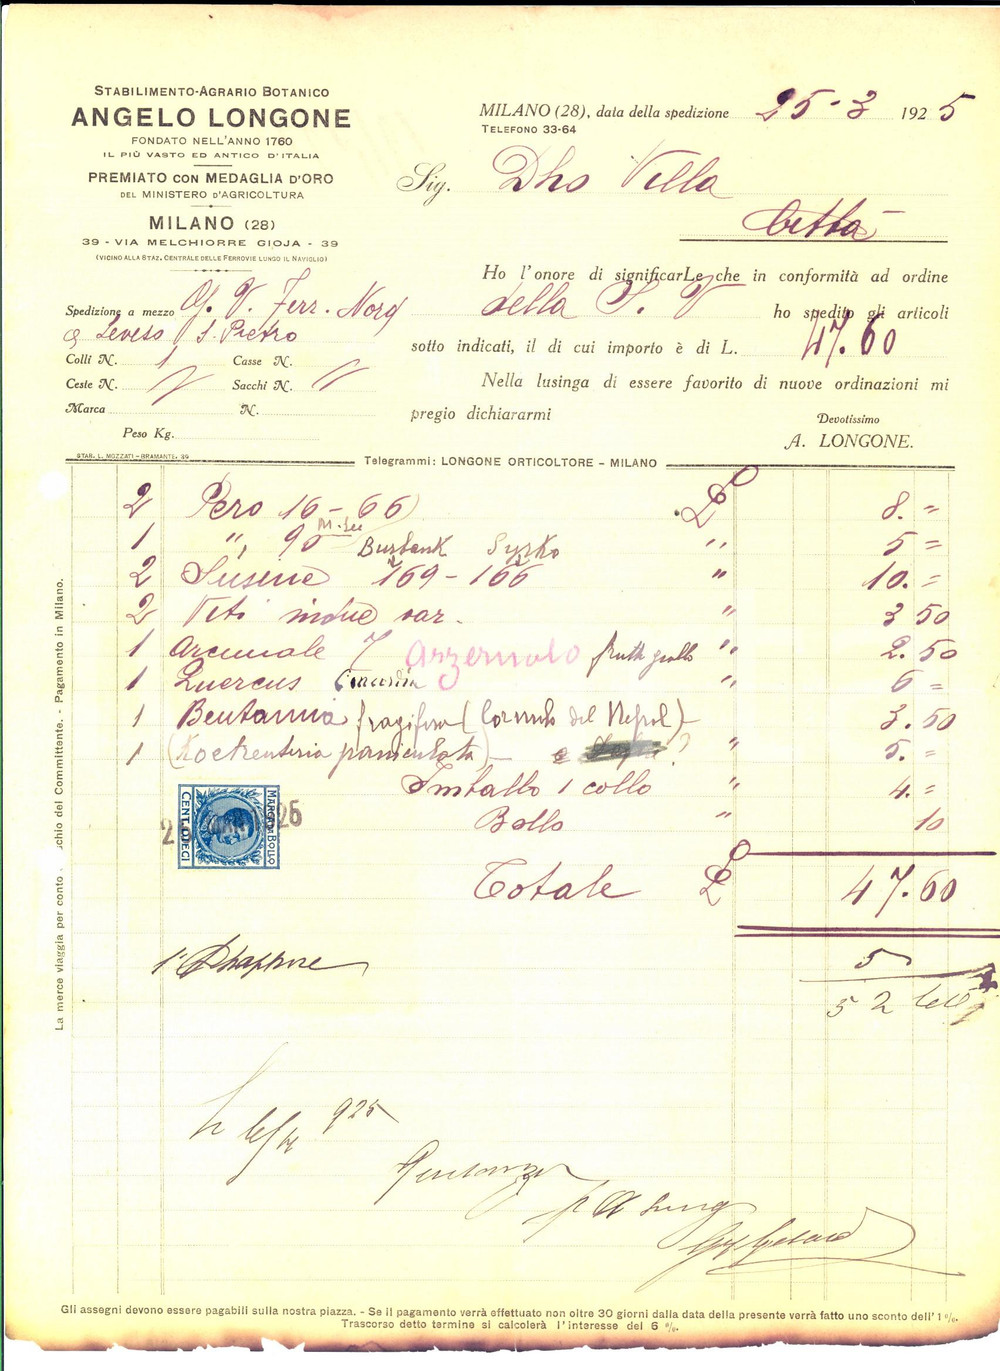 STABILIMENTO-AGRARIO BOTANICO
ANGELO LONGONE
FONDATO NELL'ANNO 1760
IL PIÙ VASTO ED ANTICO D'ITALIA
PREMIATO CON MEDAGLIA D'ORO
DEL MINISTERO D'AGRICOLTURA
MILANO (28)
39 - VIA MELCHIORRE GIOJA - 39
(VICINO ALLA STAZ. CENTRALE DELLE FERROVIE LUNGO IL NAVIGLIO)
MILANO (28), data della spedizione 25-3 1925
TELEFONO 33-64
Sig. Dho Villa
Città
Ho l'onore di significarLe che in conformità ad ordine
della S. V. ho spedito gli articoli
sotto indicati, il di cui importo è di L. 47.60
Nella lusinga di essere favorito di nuove ordinazioni mi
pregio dichiararmi
Devotissimo
A. LONGONE.
Spedizione a mezzo G. V. Ferr. Nord
a Seveso S. Pietro
Colli N. 1 Casse N.
Ceste N. Sacchi N.
Marca N.
Peso Kg.
STAB. L. MOZZATI - BRAMANTE, 39
Telegrammi: LONGONE ORTICOLTORE - MILANO
2 Pero 16-66 £ 8. =
1 ", 90 Burbank " 5 =
2 Susine 169-166 " 10. =
2 Viti var. " 3 50
1 7 Azzeruolo frutti giallo " 2.50
1 Quercus " 6 =
1 Bentamia fragifera (Cornulo del Nepol) 3.50
1 (Kockenteria paniculata) ? " 5. =
Imballo 1 collo " 4. =
Bollo " 10
MARCA DA BOLLO
CENT. DIECI
2 25
Totale £ 47.60
5
52
925
La merce viaggia per conto chio del Committente. - Pagamento in Milano.
Gli assegni devono essere pagabili sulla nostra piazza. - Se il pagamento verrà effettuato non oltre 30 giorni dalla data della presente verrà fatto uno sconto dell'1 %.
Trascorso detto termine si calcolerà l'interesse del 6 %.